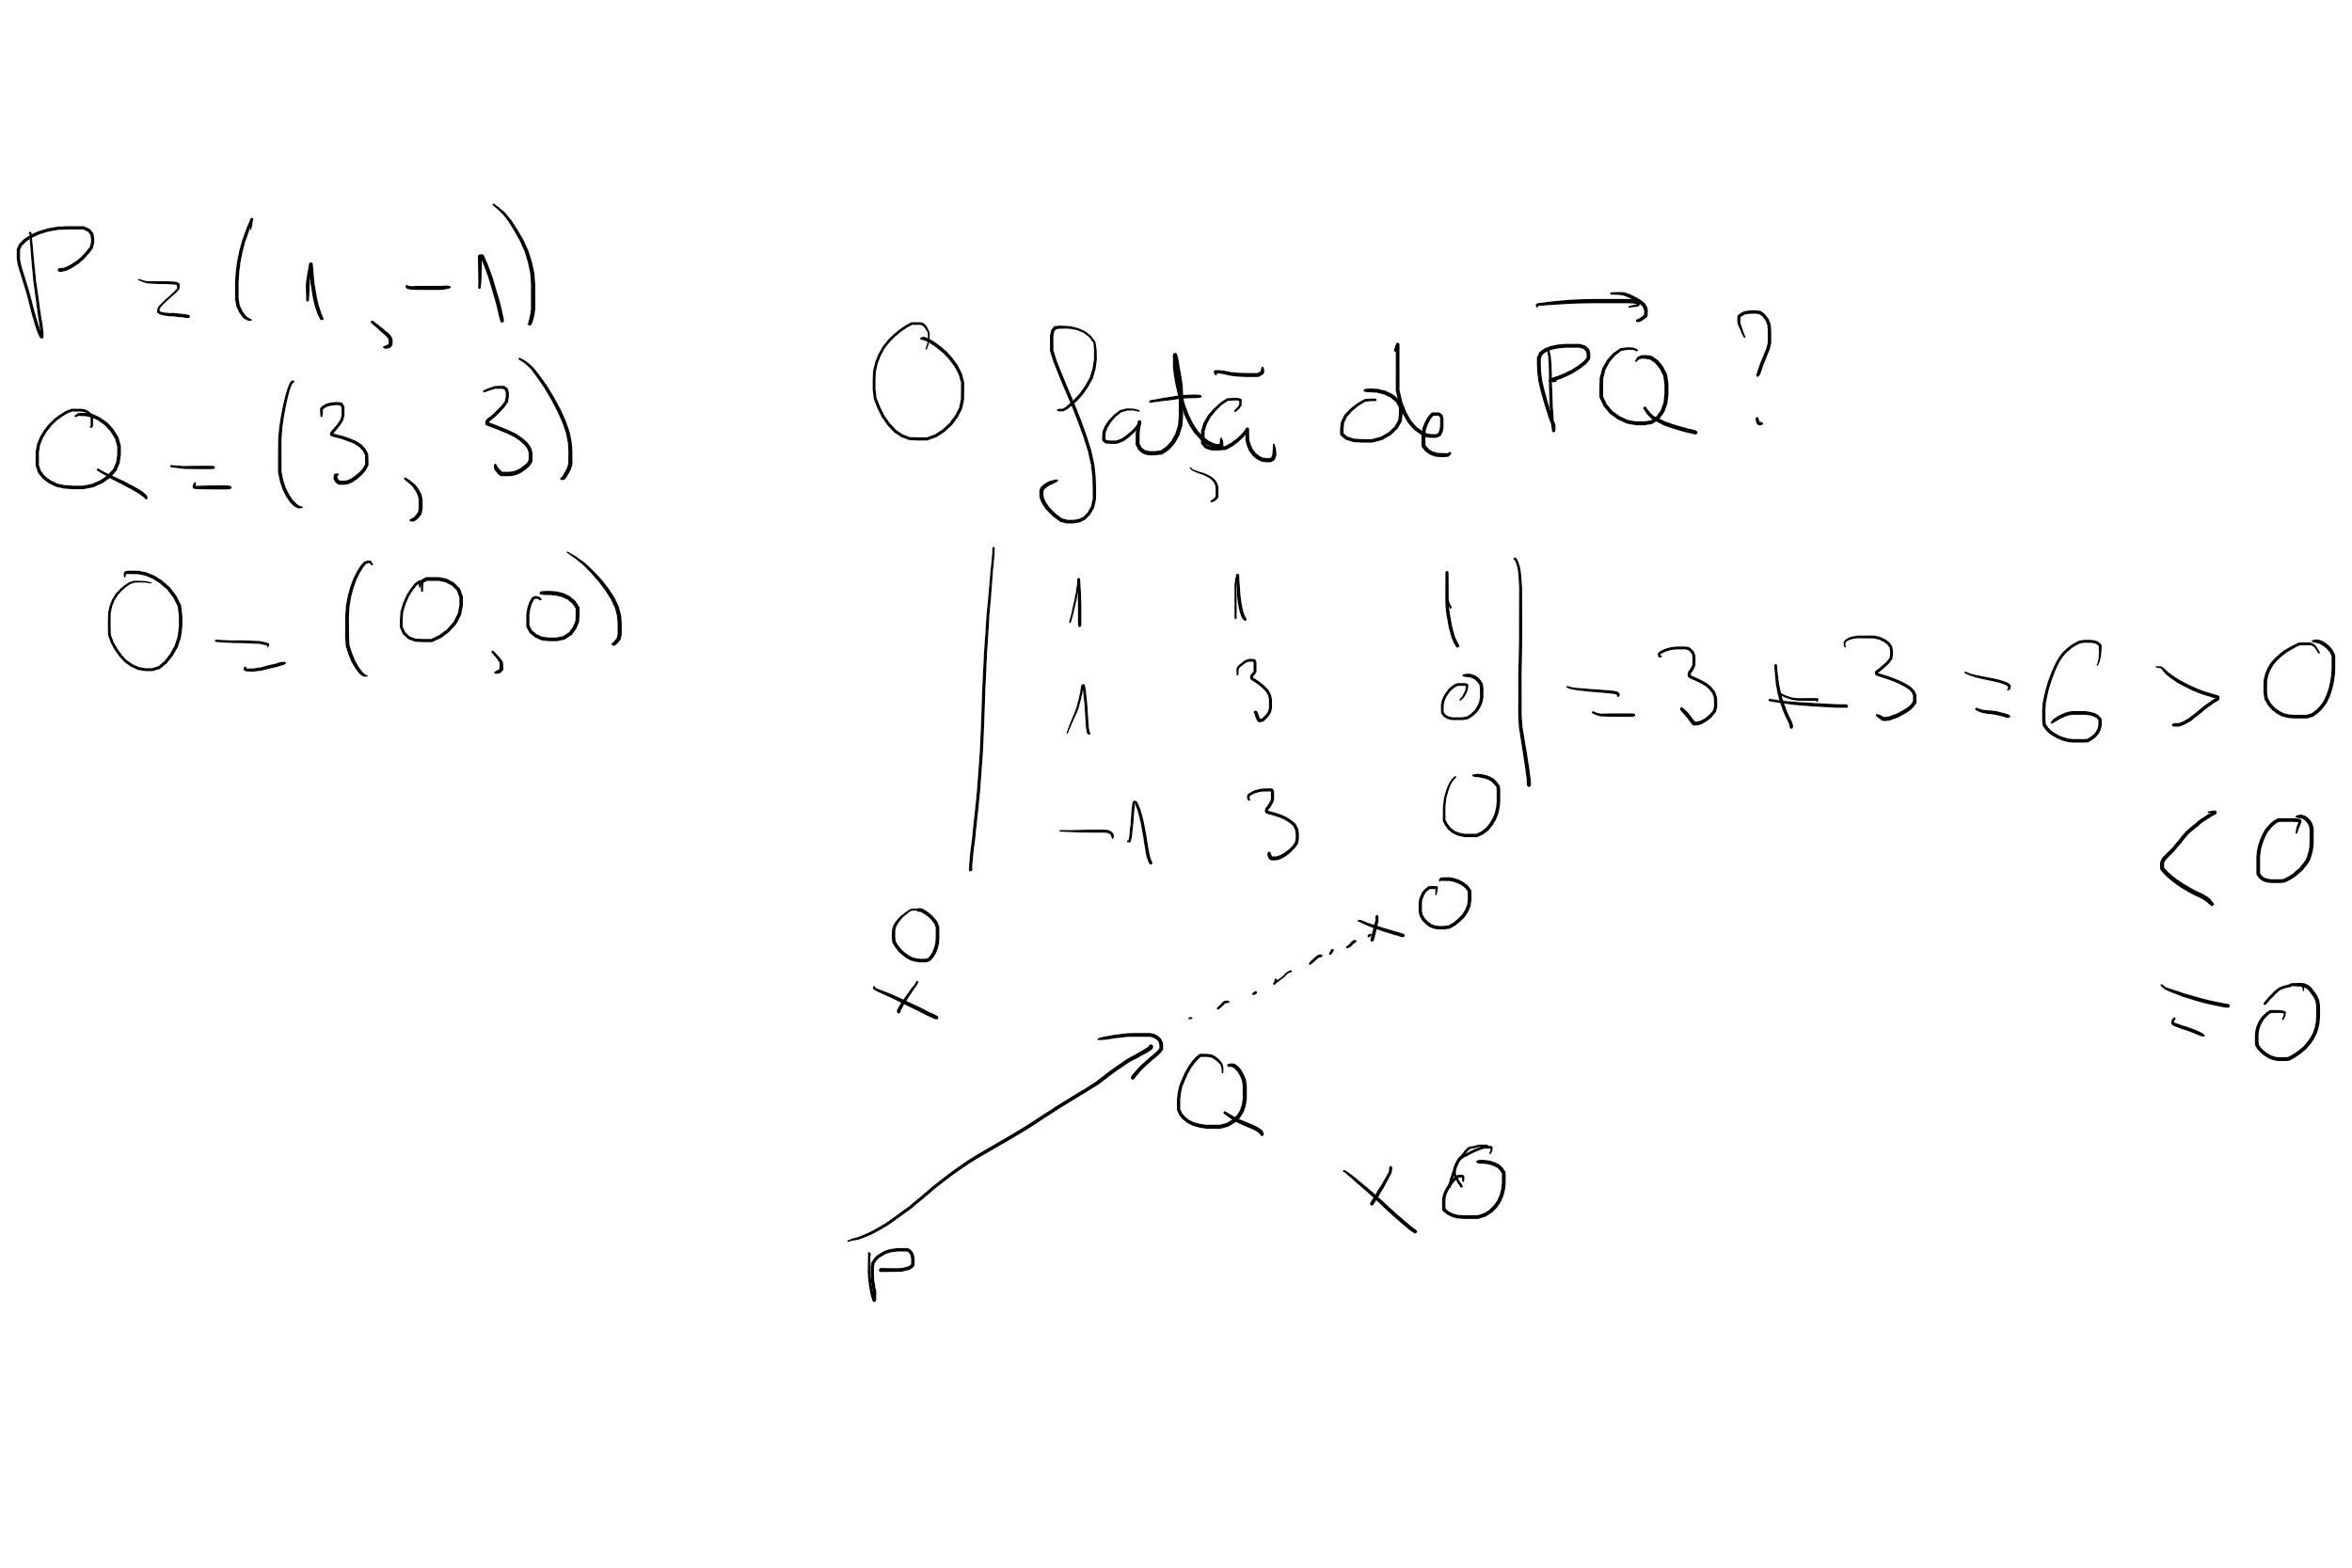 P = (1, -1)
Q = (3, 3)
O = (0, 0)
O față de PQ ?
| 1 1 1 |
| 1 3 0 | = 3 + 3 = 6 > 0
| -1 3 0 |
< 0
= 0
O
O
Q
O
P